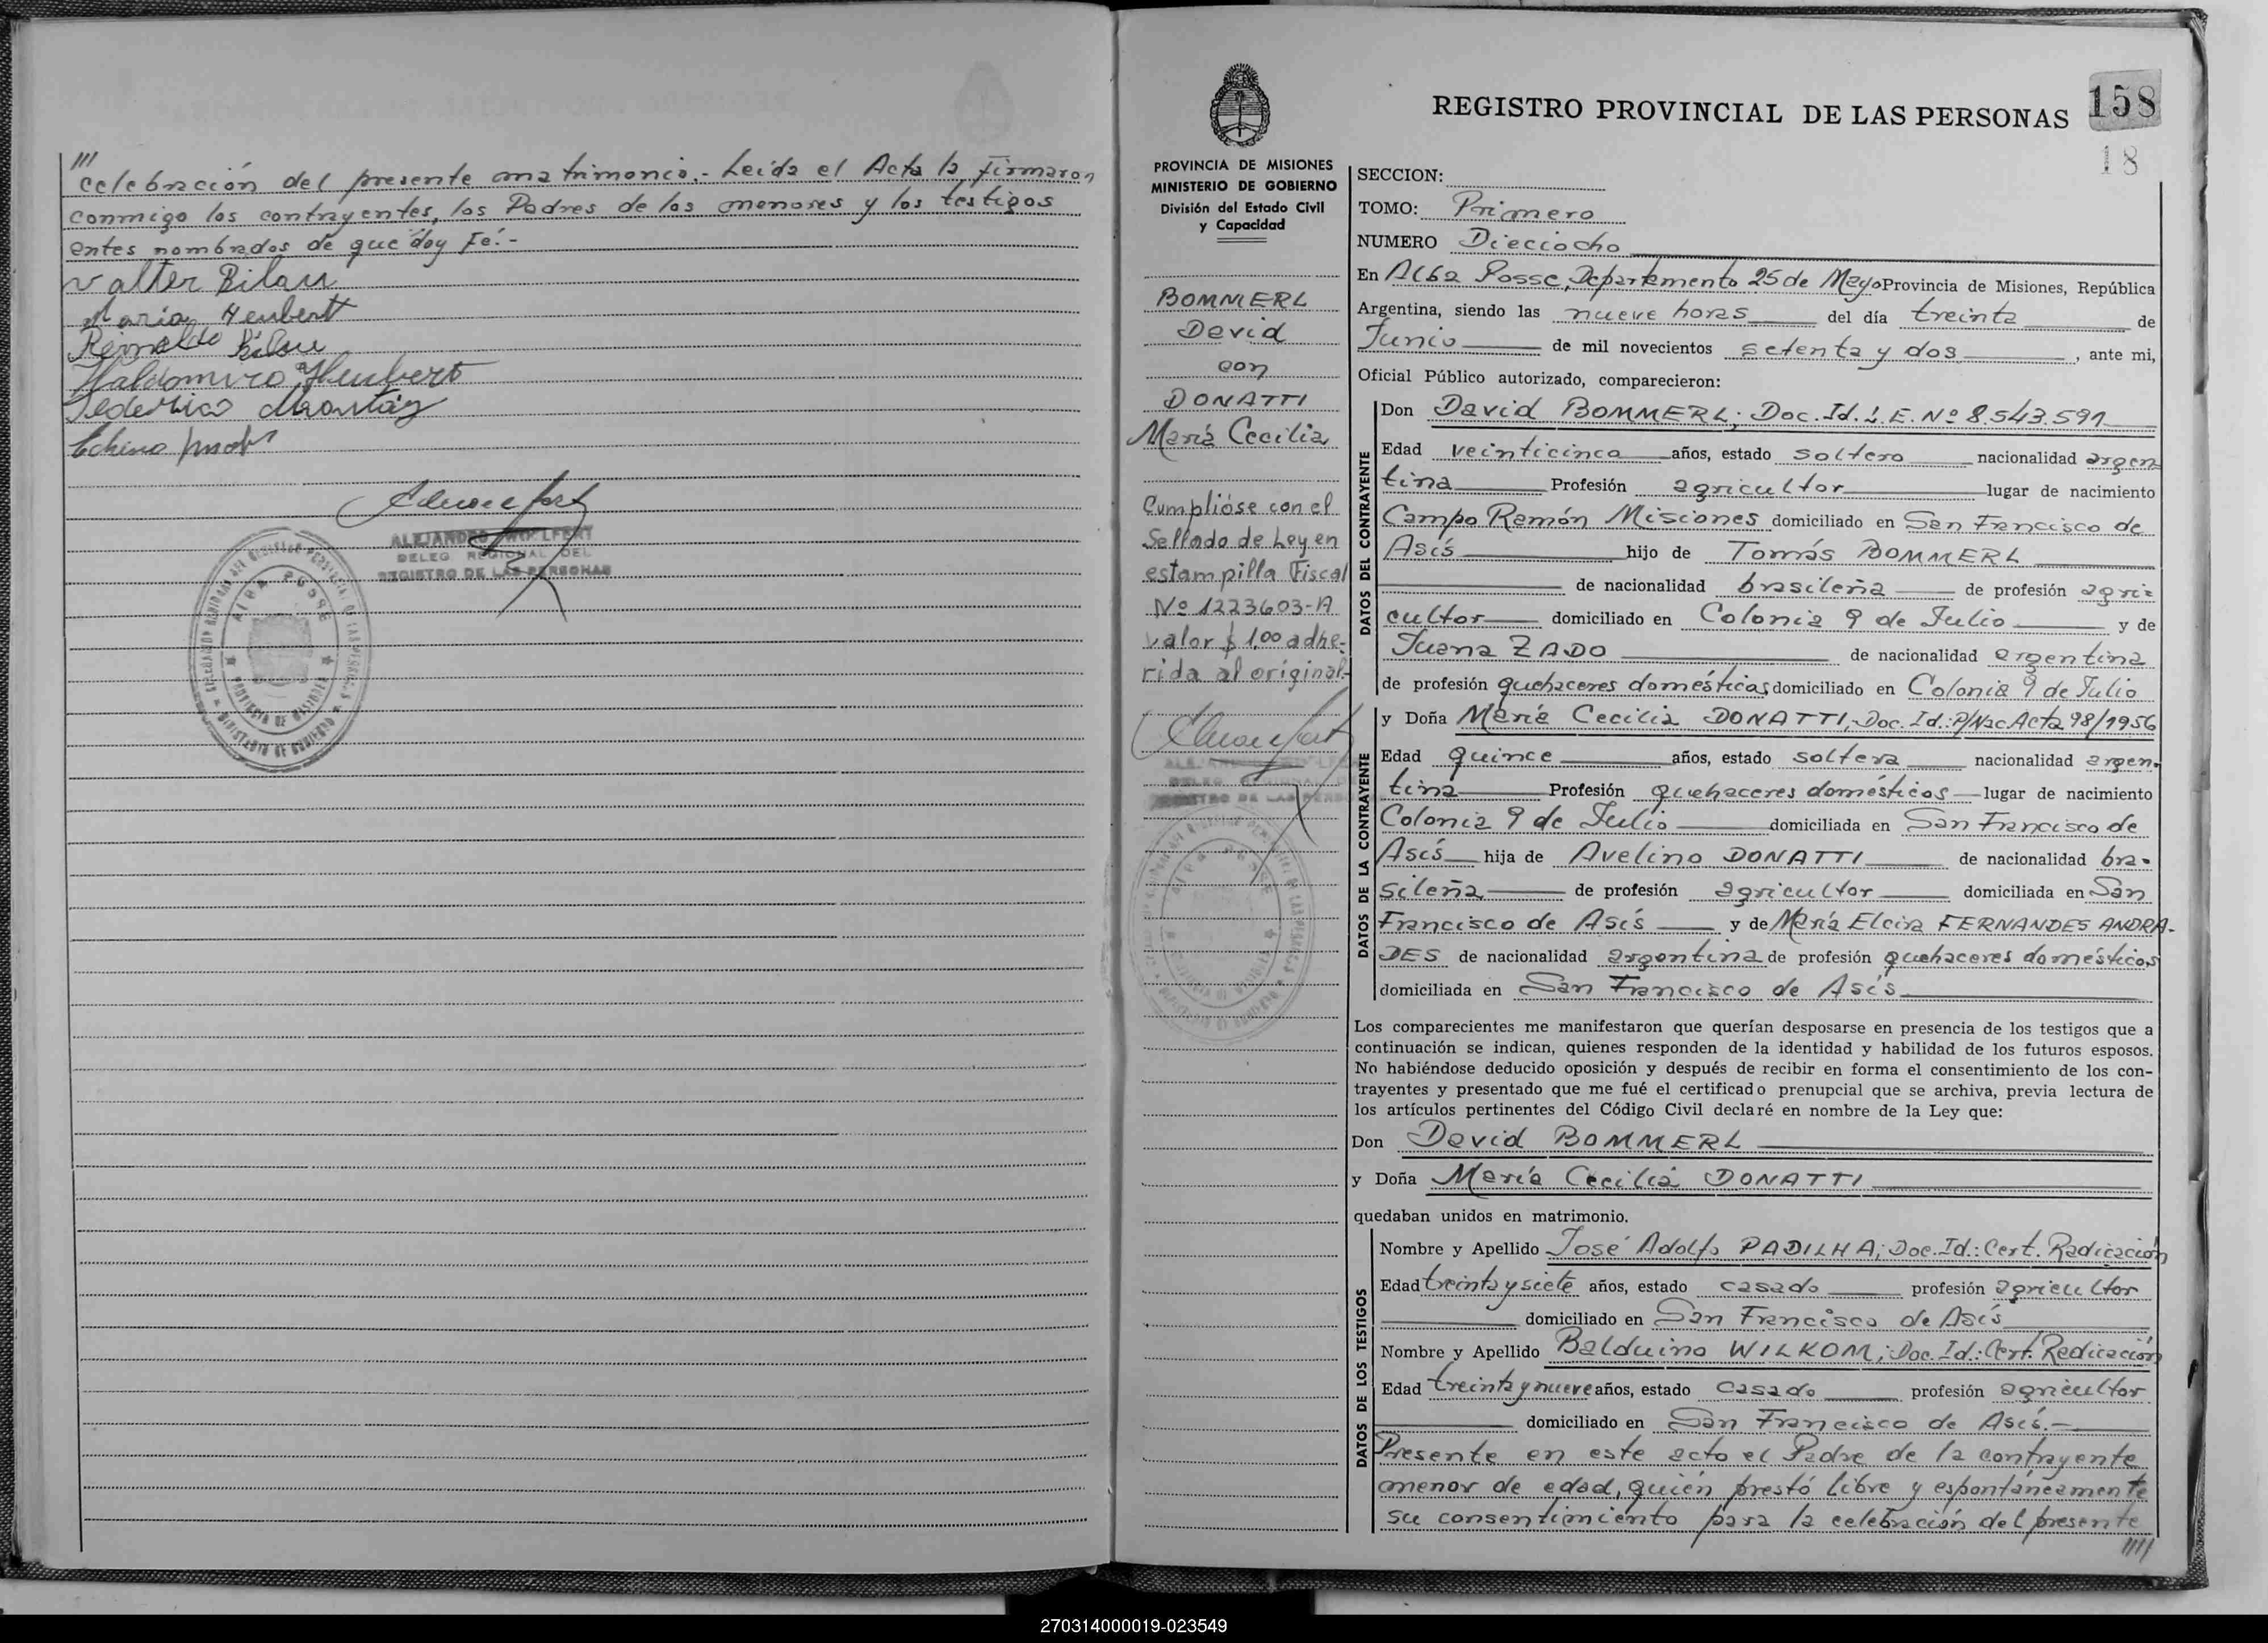 ///
celebración del presente matrimonio.- Leída el Acta la firmaron
conmigo los contrayentes, los Padres de los menores y los testigos
antes nombrados de que doy Fé.-
Walter Bilau
Maria Heubert
Reinoldo Bilau
Waldomiro Heubert
Federico
ALEJANDRO WOLFERT
DELEG. REGIONAL DEL
REGISTRO DE LAS PERSONAS
ALBA POSSE
PROVINCIA DE MISIONES
MINISTERIO DE GOBIERNO
158
18
REGISTRO PROVINCIAL DE LAS PERSONAS
PROVINCIA DE MISIONES
MINISTERIO DE GOBIERNO
División del Estado Civil
y Capacidad
BOMMERL
David
con
DONATTI
María Cecilia
Cumplióse con el
Sellado de Ley en
estampilla Fiscal
Nº 1223603-A
valor $ 1,00 adhe-
rida al original.-
SECCION:
TOMO: Primero
NUMERO Dieciocho
En Alba Posse, Departamento 25 de Mayo Provincia de Misiones, República
Argentina, siendo las nueve horas del día treinta de
Junio de mil novecientos setenta y dos, ante mi,
Oficial Público autorizado, comparecieron:
DATOS DEL CONTRAYENTE
Don David BOMMERL; Doc. Id. L.E. Nº 8.543.591
Edad veinticinco años, estado soltero nacionalidad argen-
tina Profesión agricultor lugar de nacimiento
Campo Ramón Misiones domiciliado en San Francisco de
Asís hijo de Tomás BOMMERL
de nacionalidad brasileña de profesión agri-
cultor domiciliado en Colonia 9 de Julio y de
Juana ZADO de nacionalidad argentina
de profesión quehaceres domésticos domiciliado en Colonia 9 de Julio
DATOS DE LA CONTRAYENTE
y Doña María Cecilia DONATTI, Doc. Id.: P/Nac Acta 98/1956
Edad quince años, estado soltera nacionalidad argen-
tina Profesión quehaceres domésticos lugar de nacimiento
Colonia 9 de Julio domiciliada en San Francisco de
Asís hija de Avelino DONATTI de nacionalidad bra-
sileña de profesión agricultor domiciliada en San
Francisco de Asís y de María Elcira FERNANDES ANDRA-
DES de nacionalidad argentina de profesión quehaceres domésticos
domiciliada en San Francisco de Asís
Los comparecientes me manifestaron que querían desposarse en presencia de los testigos que a
continuación se indican, quienes responden de la identidad y habilidad de los futuros esposos.
No habiéndose deducido oposición y después de recibir en forma el consentimiento de los con-
trayentes y presentado que me fué el certificado prenupcial que se archiva, previa lectura de
los artículos pertinentes del Código Civil declaré en nombre de la Ley que:
Don David BOMMERL
y Doña María Cecilia DONATTI
quedaban unidos en matrimonio.
DATOS DE LOS TESTIGOS
Nombre y Apellido José Adolfo PADILHA; Doc. Id.: Cert. Radicación
Edad treinta y siete años, estado casado profesión agricultor
domiciliado en San Francisco de Asís
Nombre y Apellido Balduino WILKOM; Doc. Id.: Cert. Radicación
Edad treinta y nueve años, estado casado profesión agricultor
domiciliado en San Francisco de Asís.-
Presente en este acto el Padre de la contrayente
menor de edad, quién prestó libre y espontáneamente
su consentimiento para la celebración del presente
////
270314000019-023549